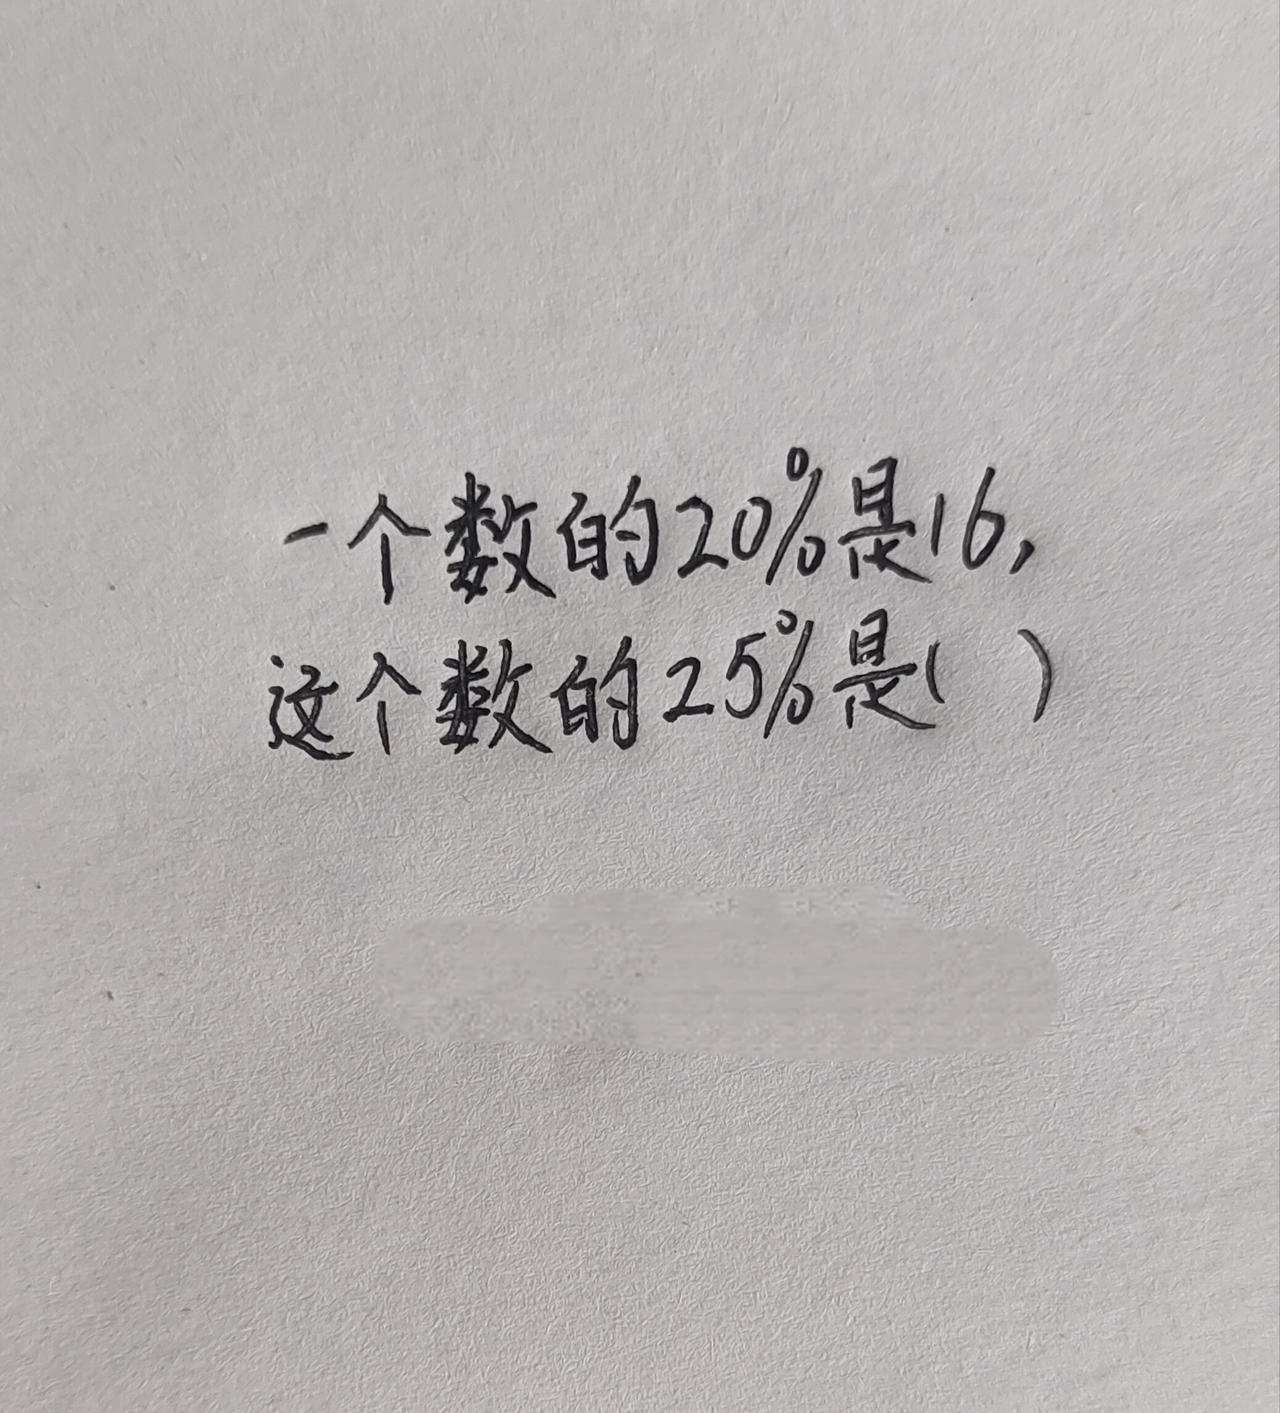 一个数的20%是16,
这个数的25%是( )